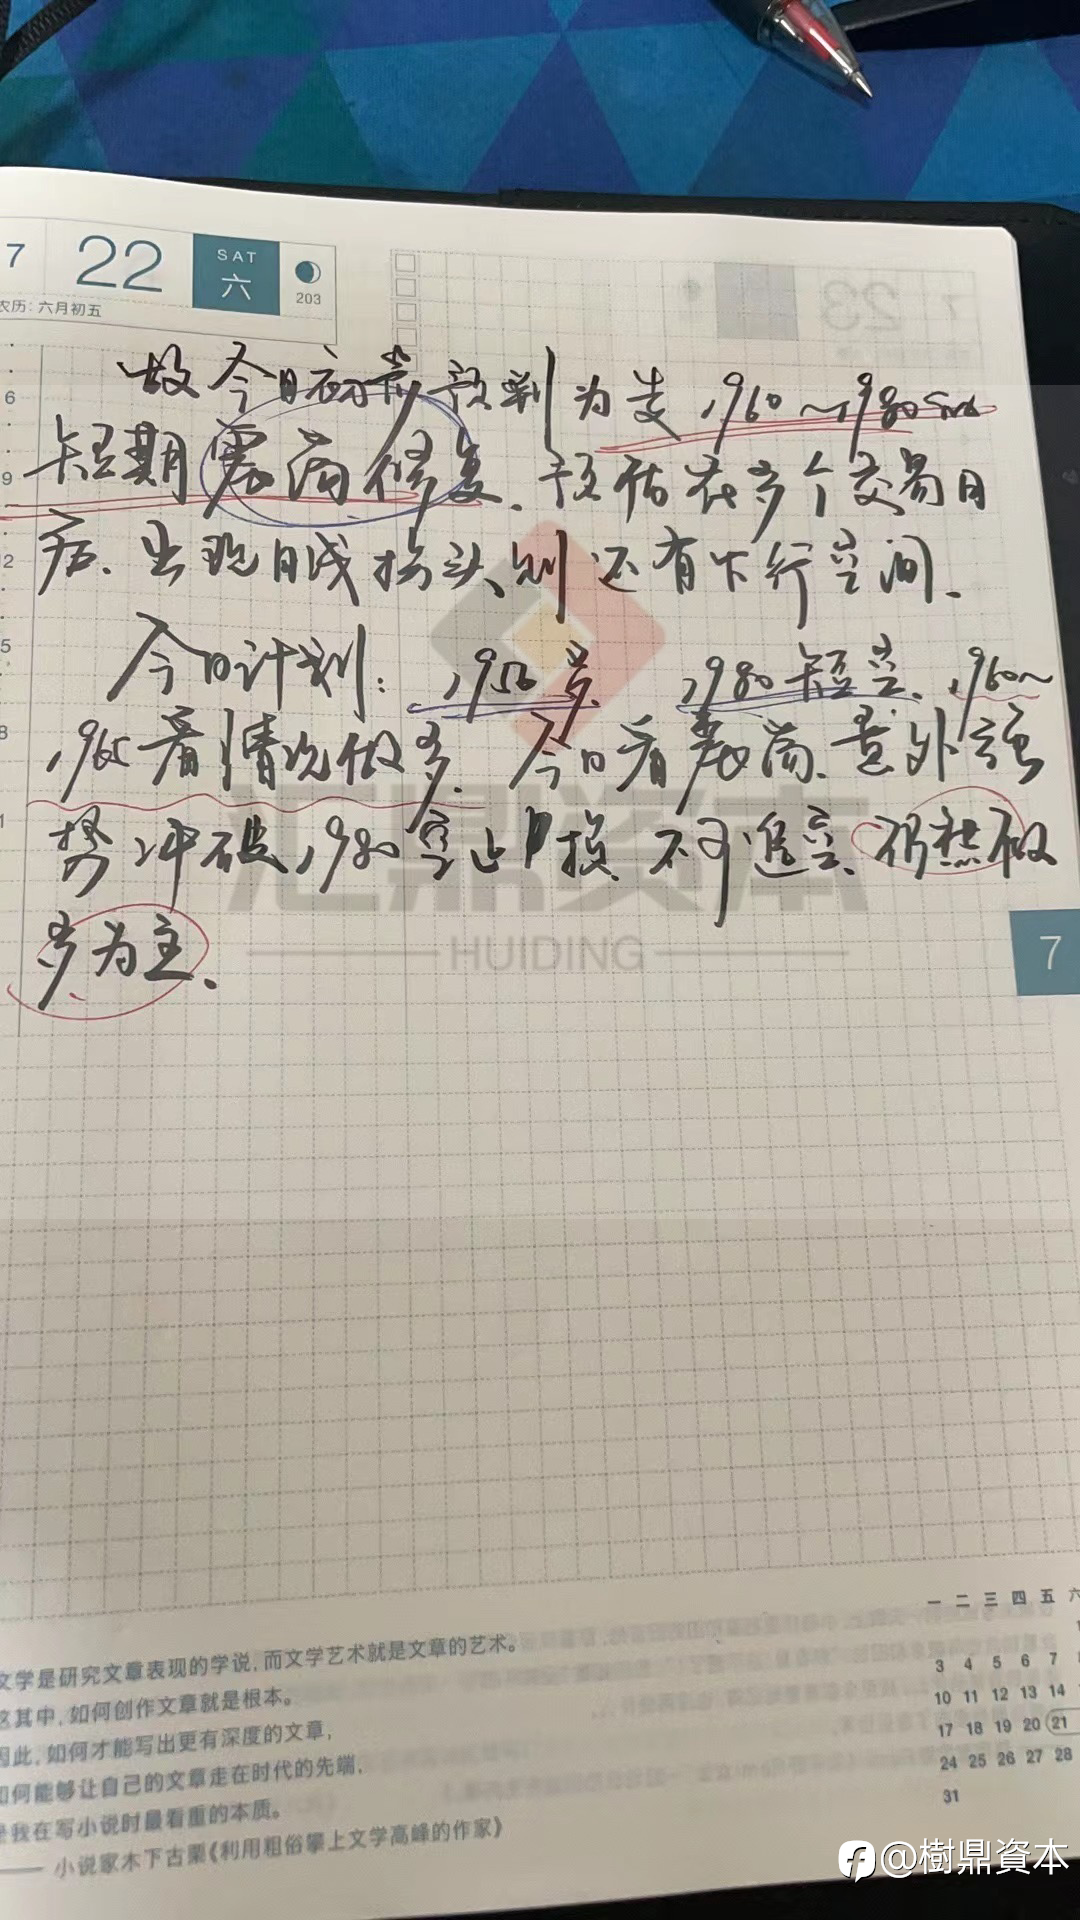 7 22 SAT 六 203
农历: 六月初五
故今日初步预判为走1960～1980
短期震荡修复.预估在多个交易日
后.出现日线拐头则还有下行空间.
今日计划: 1950多. 1980短空. 1960～
1965看情况做多. 今日看震荡.意外强
势冲破1980空止损不可追空.仍然做
多为主.
汇鼎资本
HUIDING
6
9
2
5
8
1
7
一 二 三 四 五 六
3 4 5 6 7
10 11 12 13 14
17 18 19 20 21
24 25 26 27 28
31
文学是研究文章表现的学说,而文学艺术就是文章的艺术。
这其中,如何创作文章就是根本。
因此,如何才能写出更有深度的文章,
如何能够让自己的文章走在时代的先端,
是我在写小说时最看重的本质。
—— 小说家木下古栗《利用粗俗攀上文学高峰的作家》
@樹鼎資本